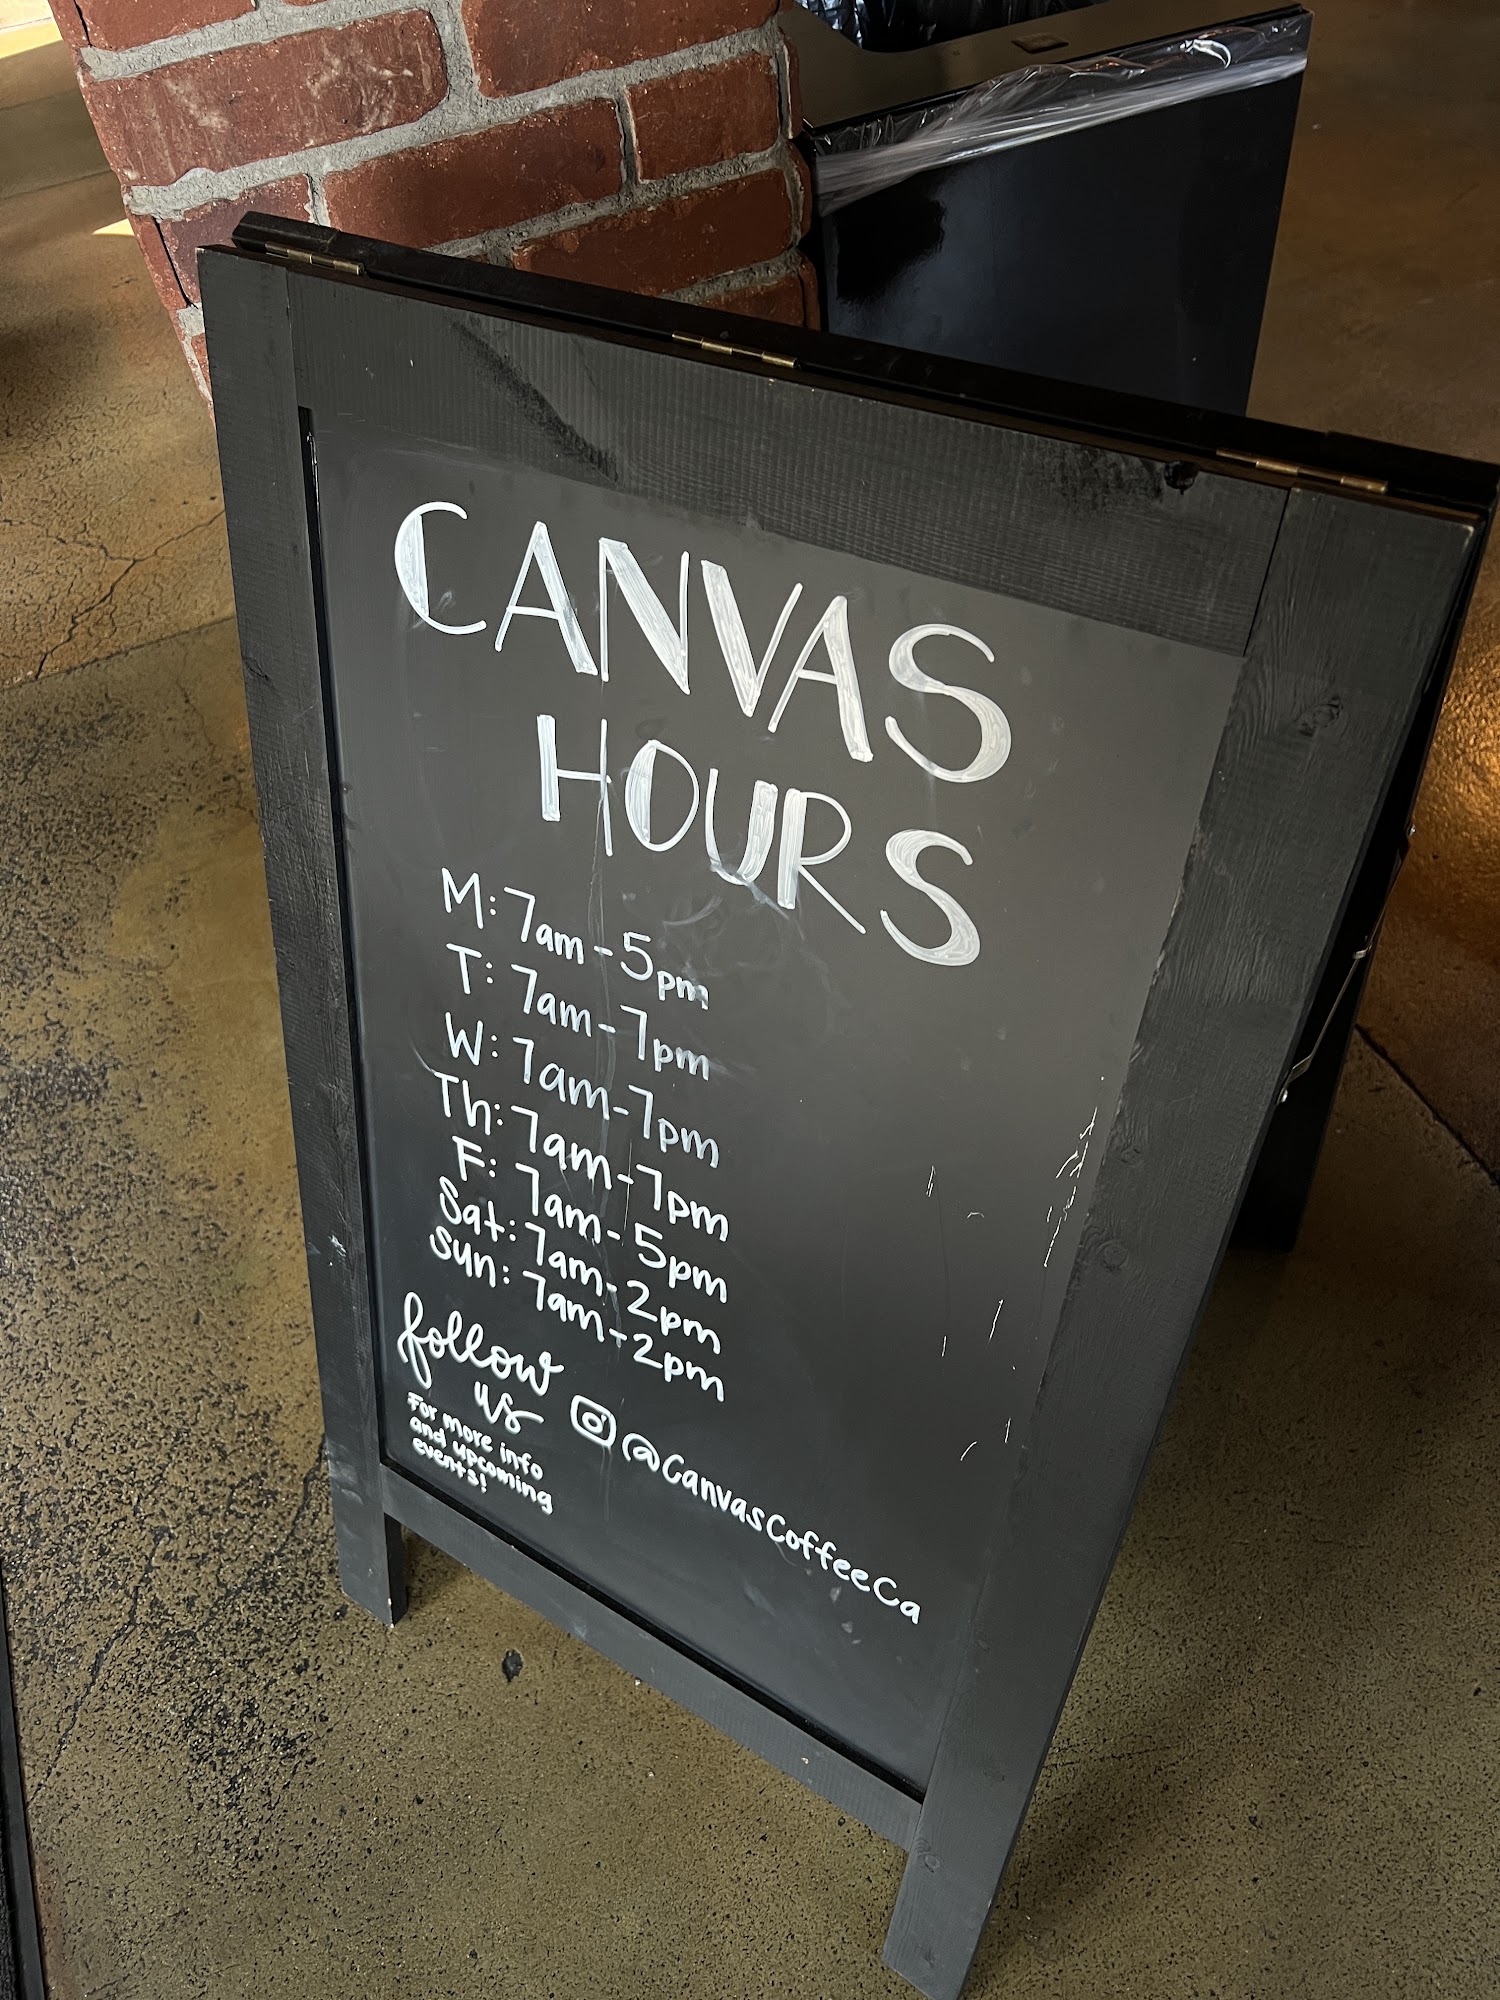 CANVAS
HOURS
M: 7am-5pm
T: 7am-7pm
W: 7am-7pm
Th: 7am-7pm
F: 7am-5pm
Sat: 7am-2pm
Sun: 7am-2pm
follow
us @CanvasCoffeeCa
For more info
and upcoming
events!